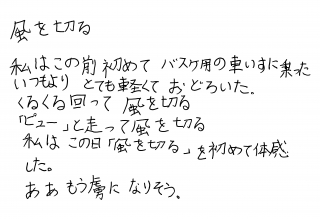 風を切る
私はこの前初めて バスケ用の車いすに乗った
いつもより とても軽くて おどろいた。
くるくる回って 風を切る
「ビュー」と走って風を切る
私は この日「風を切る」を初めて体感
した。
ああ もう虜に なりそう。